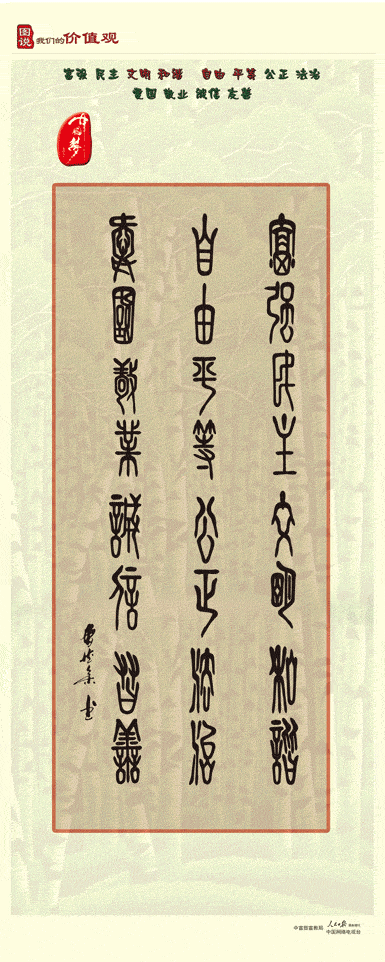 图说
我们的价值观
富强 民主 文明 和谐 自由 平等 公正 法治
爱国 敬业 诚信 友善
中国梦
富強民主文明和諧
自由平等公正法治
愛國敬業誠信友善
人民日报
中国网络电视台